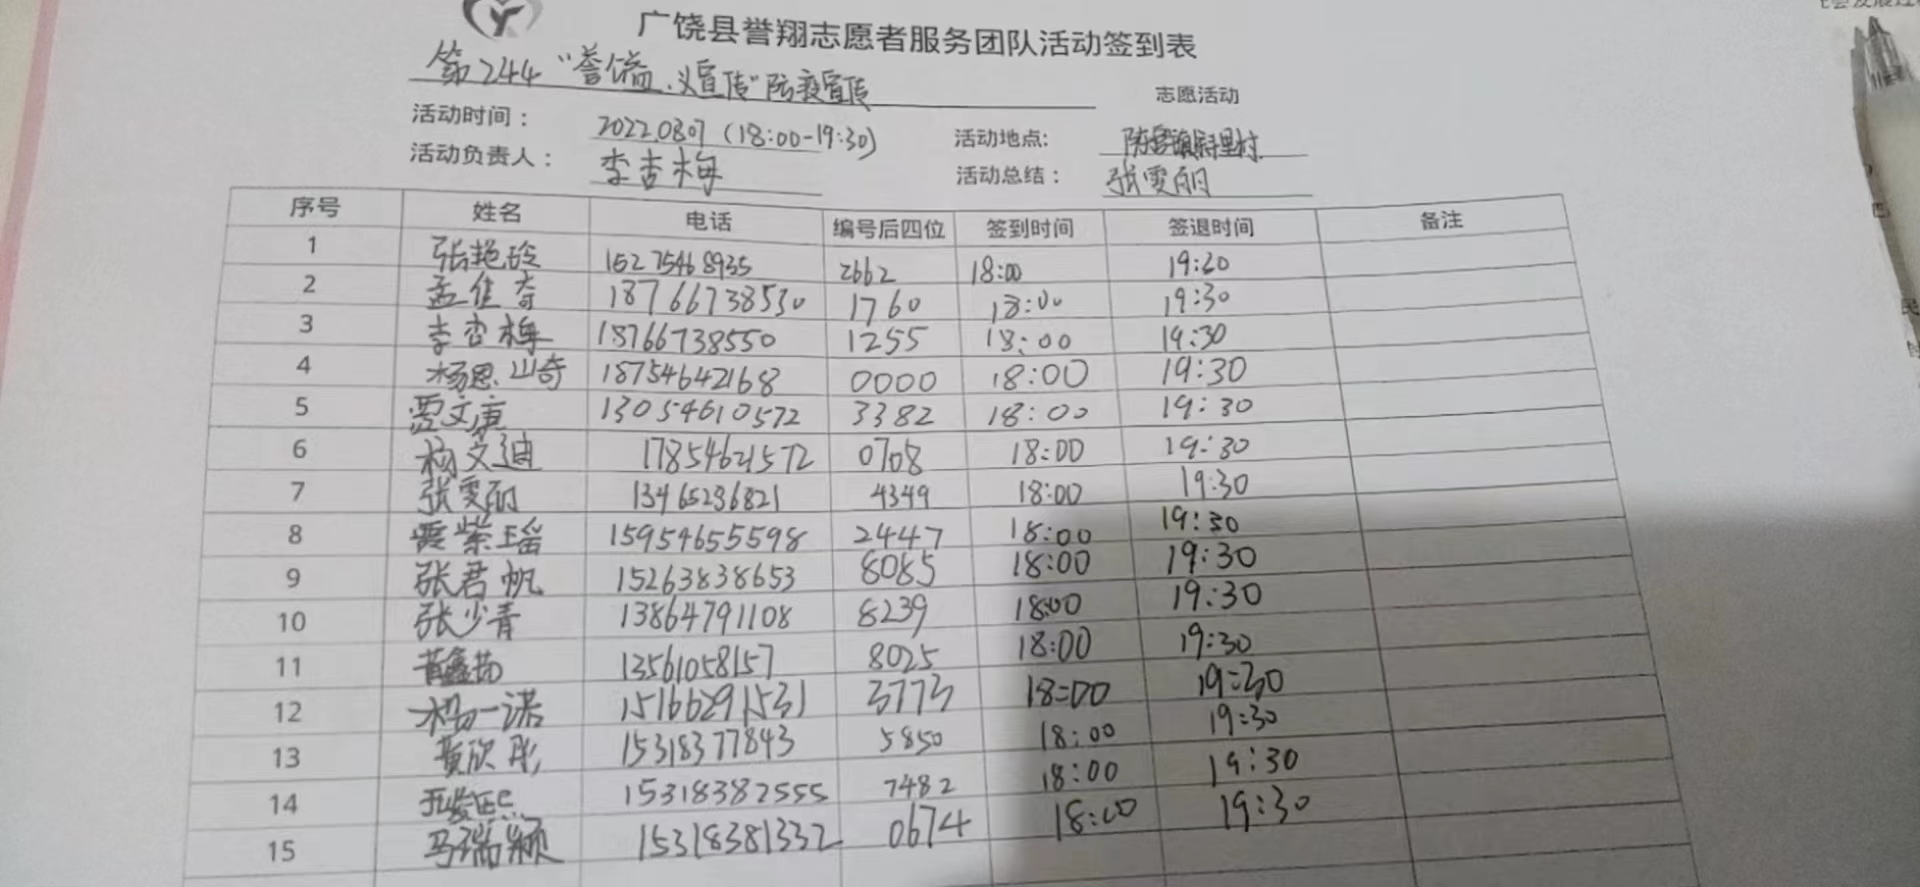 广饶县誉翔志愿者服务团队活动签到表
第244"誉益、义宣传"防疫宣传 志愿活动
活动时间： 2022.0807（18:00-19:30） 活动地点: 陈官镇 村
活动负责人： 李杏梅 活动总结： 张雯丽
序号 姓名 电话 编号后四位 签到时间 签退时间 备注
1 张艳玲 15275468935 2662 18:00 19:30
2 孟佳奇 18766738530 1760 18:00 19:30
3 李杏梅 18766738550 1255 18:00 19:30
4 杨恩山奇 18754642168 0000 18:00 19:30
5 贾文康 13054610572 3382 18:00 19:30
6 杨文迪 17854621572 0708 18:00 19:30
7 张雯丽 13465236821 4349 18:00 19:30
8 紫瑶 15954655598 2447 18:00 19:30
9 张君帆 15263838653 8085 18:00 19:30
10 张少青 13864791108 8239 18:00 19:30
11 13561058157 8025 18:00 19:30
12 杨一诺 15166291531 3773 18:00 19:30
13 黄欣彤 15318377843 5850 18:00 19:30
14 15318382555 7482 18:00 19:30
15 马瑞颖 15318381332 0674 18:00 19:30